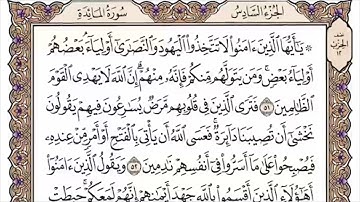 الجزء السادس
سورة المائدة
نصف
الحزب
١٢
۞ يَٰٓأَيُّهَا ٱلَّذِينَ ءَامَنُوا۟ لَا تَتَّخِذُوا۟ ٱلْيَهُودَ وَٱلنَّصَٰرَىٰٓ أَوْلِيَآءَ بَعْضُهُمْ
أَوْلِيَآءُ بَعْضٍ وَمَن يَتَوَلَّهُم مِّنكُمْ فَإِنَّهُۥ مِنْهُمْ إِنَّ ٱللَّهَ لَا يَهْدِى ٱلْقَوْمَ
ٱلظَّٰلِمِينَ ٥١ فَتَرَى ٱلَّذِينَ فِى قُلُوبِهِم مَّرَضٌ يُسَٰرِعُونَ فِيهِمْ يَقُولُونَ
نَخْشَىٰٓ أَن تُصِيبَنَا دَآئِرَةٌ فَعَسَى ٱللَّهُ أَن يَأْتِىَ بِٱلْفَتْحِ أَوْ أَمْرٍ مِّنْ عِندِهِۦ
فَيُصْبِحُوا۟ عَلَىٰ مَآ أَسَرُّوا۟ فِىٓ أَنفُسِهِمْ نَٰدِمِينَ ٥٢ وَيَقُولُ ٱلَّذِينَ ءَامَنُوٓا۟
أَهَٰٓؤُلَآءِ ٱلَّذِينَ أَقْسَمُوا۟ بِٱللَّهِ جَهْدَ أَيْمَٰنِهِمْ إِنَّهُمْ لَمَعَكُمْ حَبِطَتْ